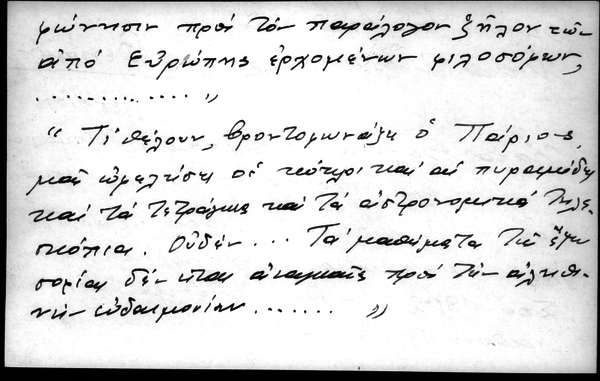 φώνησιν πρὸς τὸν παράλογον ζῆλον τῶν
ἀπὸ Εὐρώπης ἐρχομένων φιλοσόφων,
............. »
"Τί θέλουν, βροντοφωνάζει ὁ Πάριος,
μᾶς ὠφελήσει οἱ καὶ αἱ πυραμίδες
καὶ τὰ τετράγωνα καὶ τὰ ἀστρονομικὰ τηλε-
σκόπια. Οὐδέν... Τὰ μαθήματα τῆς ἔξω
σοφίας δὲν εἶναι ἀναγκαῖα πρὸς τὴν ἀληθι-
νὴν εὐδαιμονίαν....... »